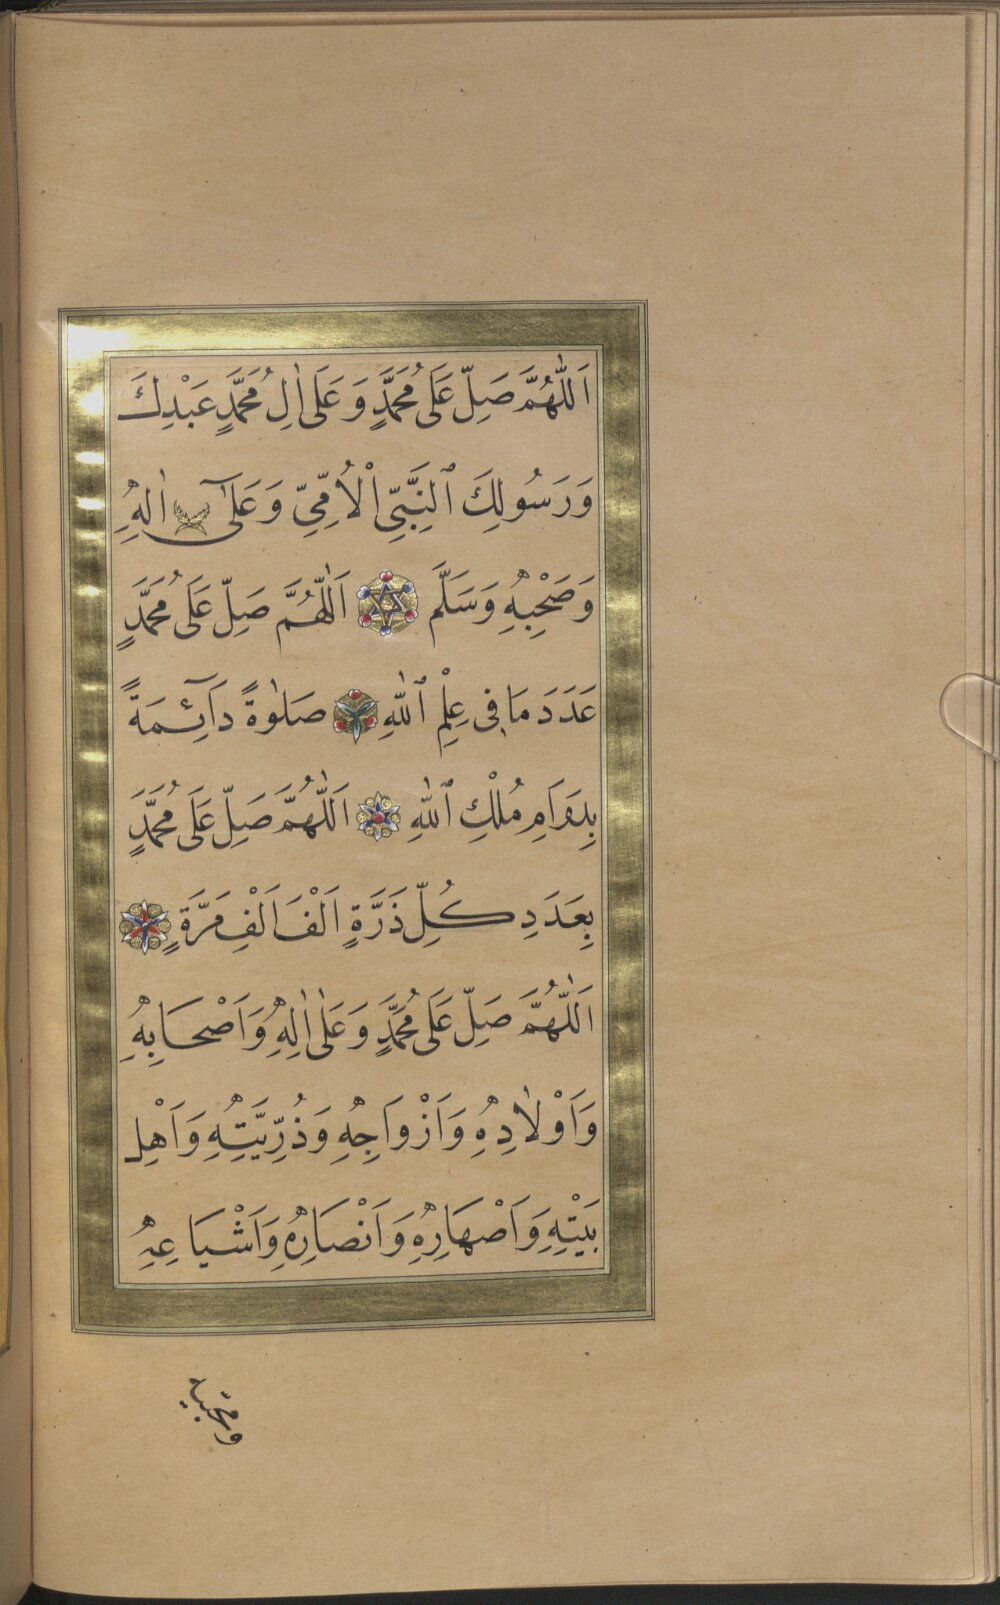 اَللّٰهُمَّ صَلِّ عَلَى مُحَمَّدٍ وَعَلَى اٰلِ مُحَمَّدٍ عَبْدِكَ
وَرَسُولِكَ ٱلنَّبِيِّ اْلأُمِّيِّ وَعَلٰٓى اٰلِهِ
وَصَحْبِهِ وَسَلَّم اَللّٰهُمَّ صَلِّ عَلَى مُحَمَّدٍ
عَدَدَ مَا فِى عِلْمِ ٱللّٰهِ صَلٰوةً دَآئِمَةً
بِدَوَامِ مُلْكِ ٱللّٰهِ اَللّٰهُمَّ صَلِّ عَلَى مُحَمَّدٍ
بِعَدَدِ كُلِّ ذَرَّةٍ اَلْفَ اَلْفِ مَرَّةٍ
اَللّٰهُمَّ صَلِّ عَلَى مُحَمَّدٍ وَعَلٰى اٰلِهِ وَاَصْحَابِهِ
وَاَوْلاٰدِهِ وَاَزْوَاجِهِ وَذُرِّيَّتِهِ وَاَهْلِ
بَيْتِهِ وَاَصْهَارِهِ وَاَنْصَارِهِ وَاَشْيَاعِهِ
ومحبيه